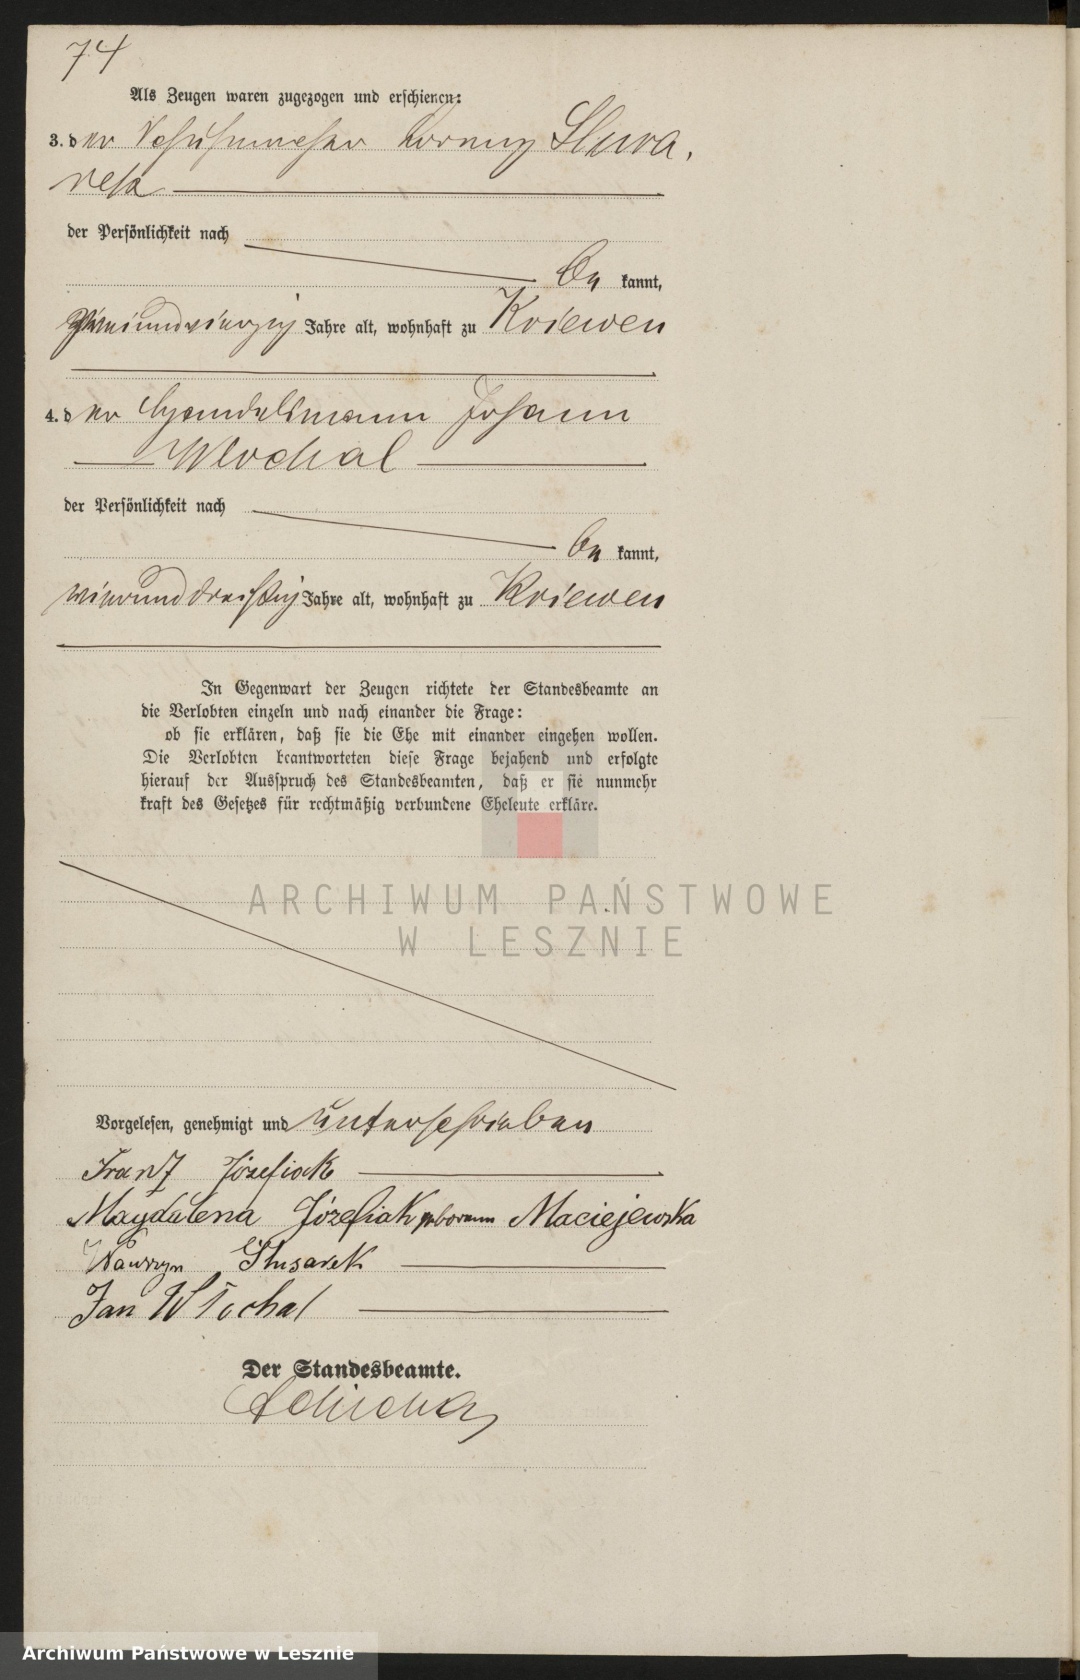 74
Als Zeugen waren zugezogen und erschienen:
3. der Schuhmacher Lorenz Slusa-
rek
der Persönlichkeit nach
be kannt,
zweiundvierzig Jahre alt, wohnhaft zu Kriewen
4. der Handelsmann Johann
Wlochal
der Persönlichkeit nach
be kannt,
vierunddreißig Jahre alt, wohnhaft zu Kriewen
In Gegenwart der Zeugen richtete der Standesbeamte an
die Verlobten einzeln und nach einander die Frage:
ob sie erklären, daß sie die Ehe mit einander eingehen wollen.
Die Verlobten beantworteten diese Frage bejahend und erfolgte
hierauf der Ausspruch des Standesbeamten, daß er sie nunmehr
kraft des Gesetzes für rechtmäßig verbundene Eheleute erkläre.
ARCHIWUM PAŃSTWOWE
W LESZNIE
Vorgelesen, genehmigt und unterschrieben
Franz Józefiak
Magdalena Józefiak geborene Maciejewska
Wawrzyn Slusarek
Jan Włochal
Der Standesbeamte.
Archiwum Państwowe w Lesznie